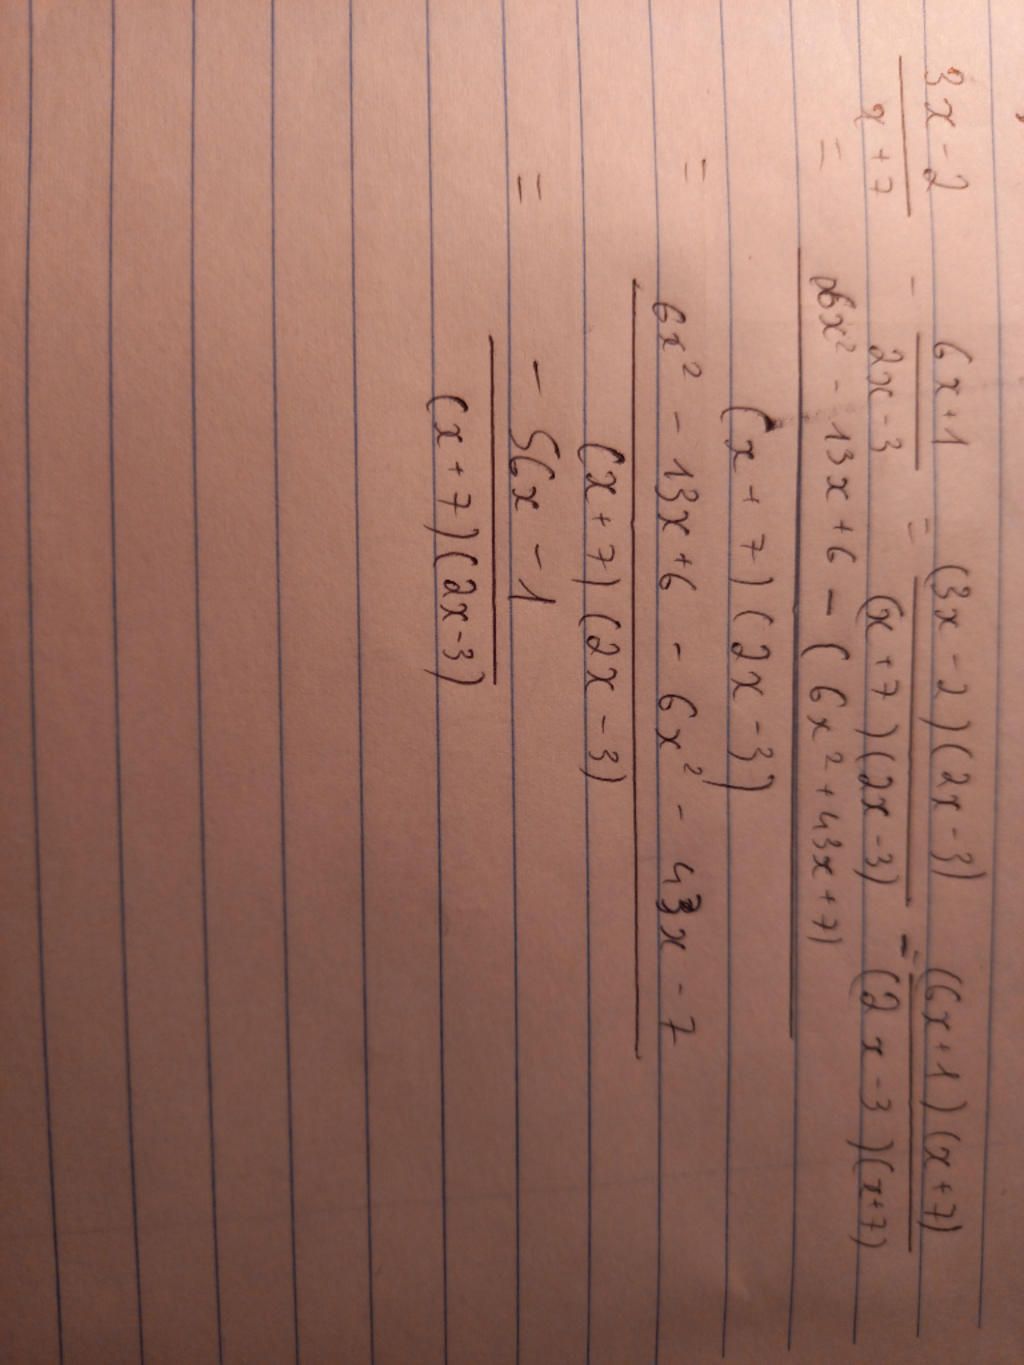 3x-2/x+7 - 6x+1/2x-3 = (3x-2)(2x-3)/(x+7)(2x-3) - (6x+1)(x+7)/(2x-3)(x+7)
= 6x² - 13x+6 - (6x²+43x+7)/(x+7)(2x-3)
= 6x² - 13x+6 - 6x² - 43x - 7/(x+7)(2x-3)
= - 56x - 1/(x+7)(2x-3)